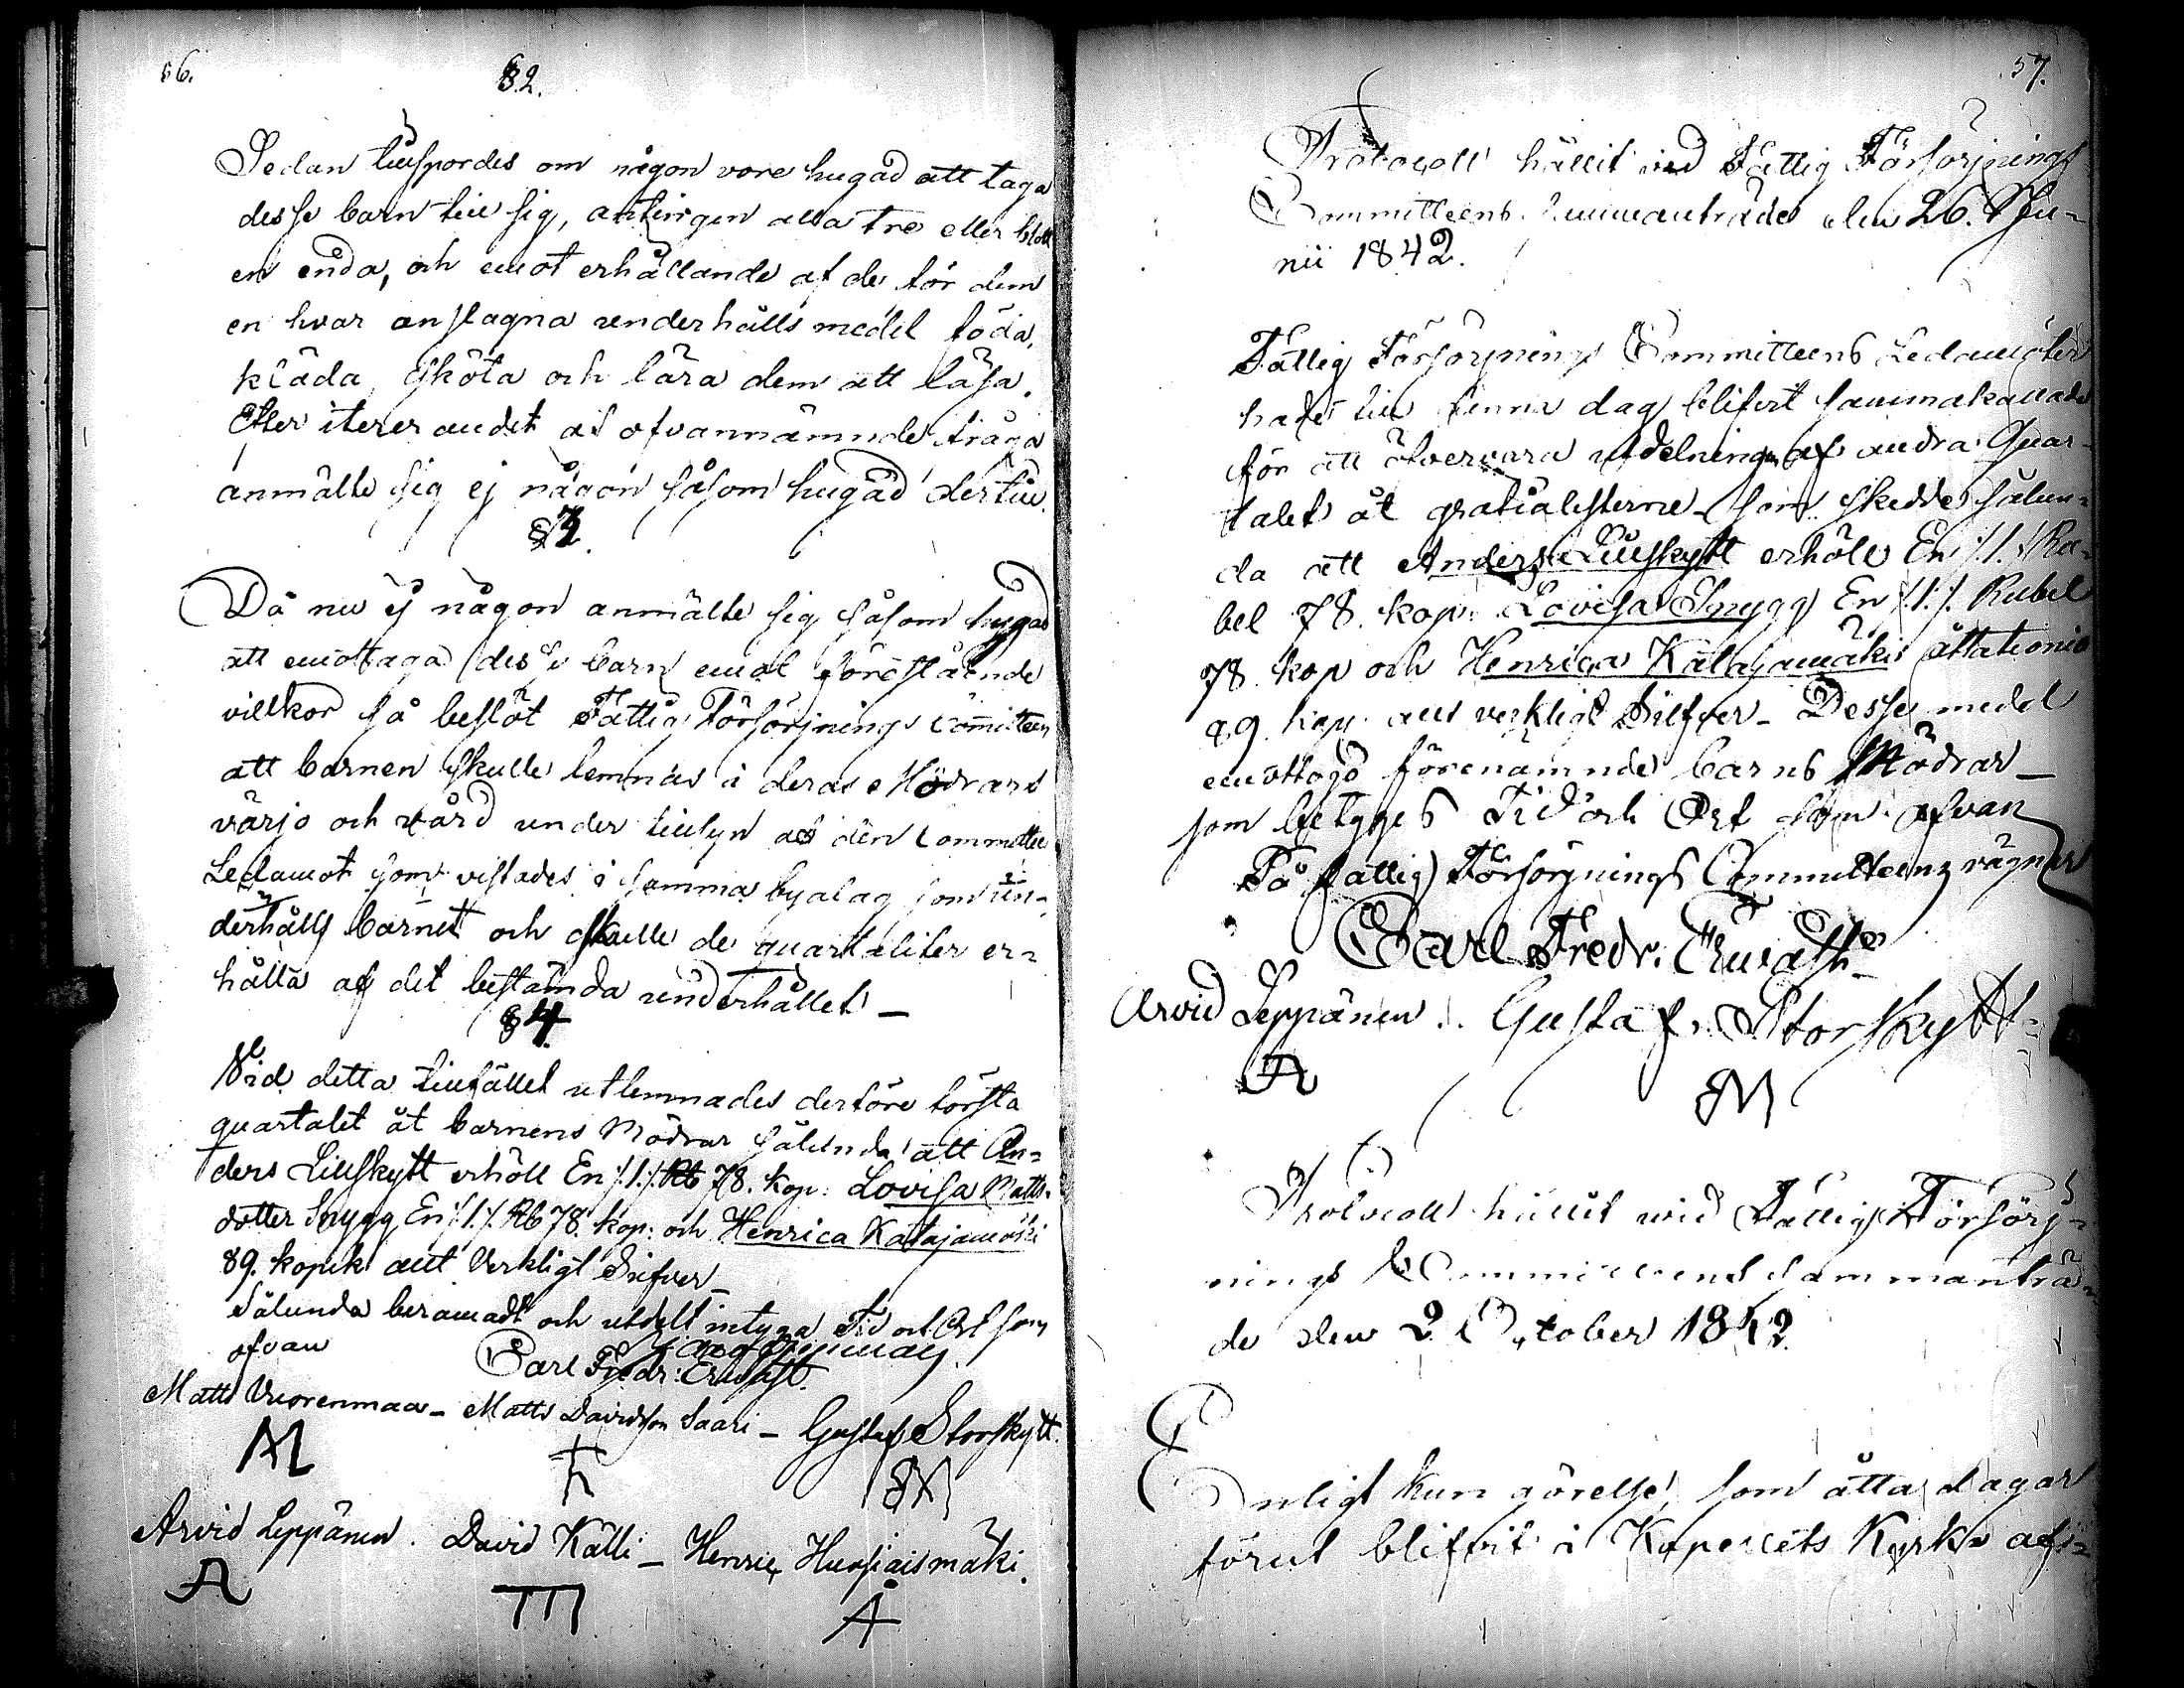 56.
§ 2.
Sedan tillspordes om någon vore hugad att taga
desse barn till sig, antingen alla tre eller blott
en enda, och emot erhållande af de för dem
en hvar anslagna underhålls medel föda,
kläda, sköta och lära dem att läsa.
Efter itererandet af ofvannämnde fråga
anmälte sig ej någon såsom hugad dertill.
§ 3.
Då nu ej någon anmälte sig såsom hugad
att emottaga desse barn emot förestående
villkor så beslöt Fattig Försörjnings Committeen
att barnen skulle lemnas i deras Mödrars
värjo och vård under tillsyn af den Committee
Ledamot som vistades i samma byalag som un-
derhålls barnet och skulle de quartaliter er-
hålla af det bestämda underhållet –
§ 4.
Vid detta tillfället utlemnades derföre första
quartalet åt barnens Mödrar sålunda att An-
ders Lillskytt erhöll En /.1./ Rb 78. kop: Lovisa Matts-
dotter Snygg En /.1./ Rb 78. kop: och Henrica Katajamäki
89. kopek allt Verkligt Silfver –
Sålunda beramadt och utdelt intyga Tid och Ort som
ofvan
Carl Fredr: Erwast.
Matts Vuorenmaa – Matts Davidsson Saari – Gustaf Storskytt.
M
SM
Arvid Leppänen. David Källi – Henric Huosiaismäki.
A
Å
57.
Protocoll hållit vid Fattig Försörjnings
Committeens Sammanträde den 26. Ju-
nii 1842.
Fattig Försörjnings Committeens Ledamöter
hade till denna dag blifvit sammakallade
för att öfvervara utdelningen af andra Quar-
talet åt gratialisterne – som skedde sålun-
da att Anders Lillskytt erhöll En /.1./ Ru-
bel 78. kop: Lovisa Snygg En /.1./ Rubel
78. kop och Henrica Katajamäki åttationio
89. kop. allt verkligt Silfver – Desse medel
emottogo förenämnde barns Mödrar –
som betygges Tid och Ort som ofvan
På Fattig Försörjnings Committeens vägnar
Carl Fredr. Erwast
Arvid Leppänen. Gustaf. Storskytt.
A
SM
Protocoll hållit vid Fattig Försörj-
nings Committeens Sammanträ-
de den 2 October 1842.
Enligt kungörelse, som åtta dagar
förut blifvit i Kapellets Kyrka af-